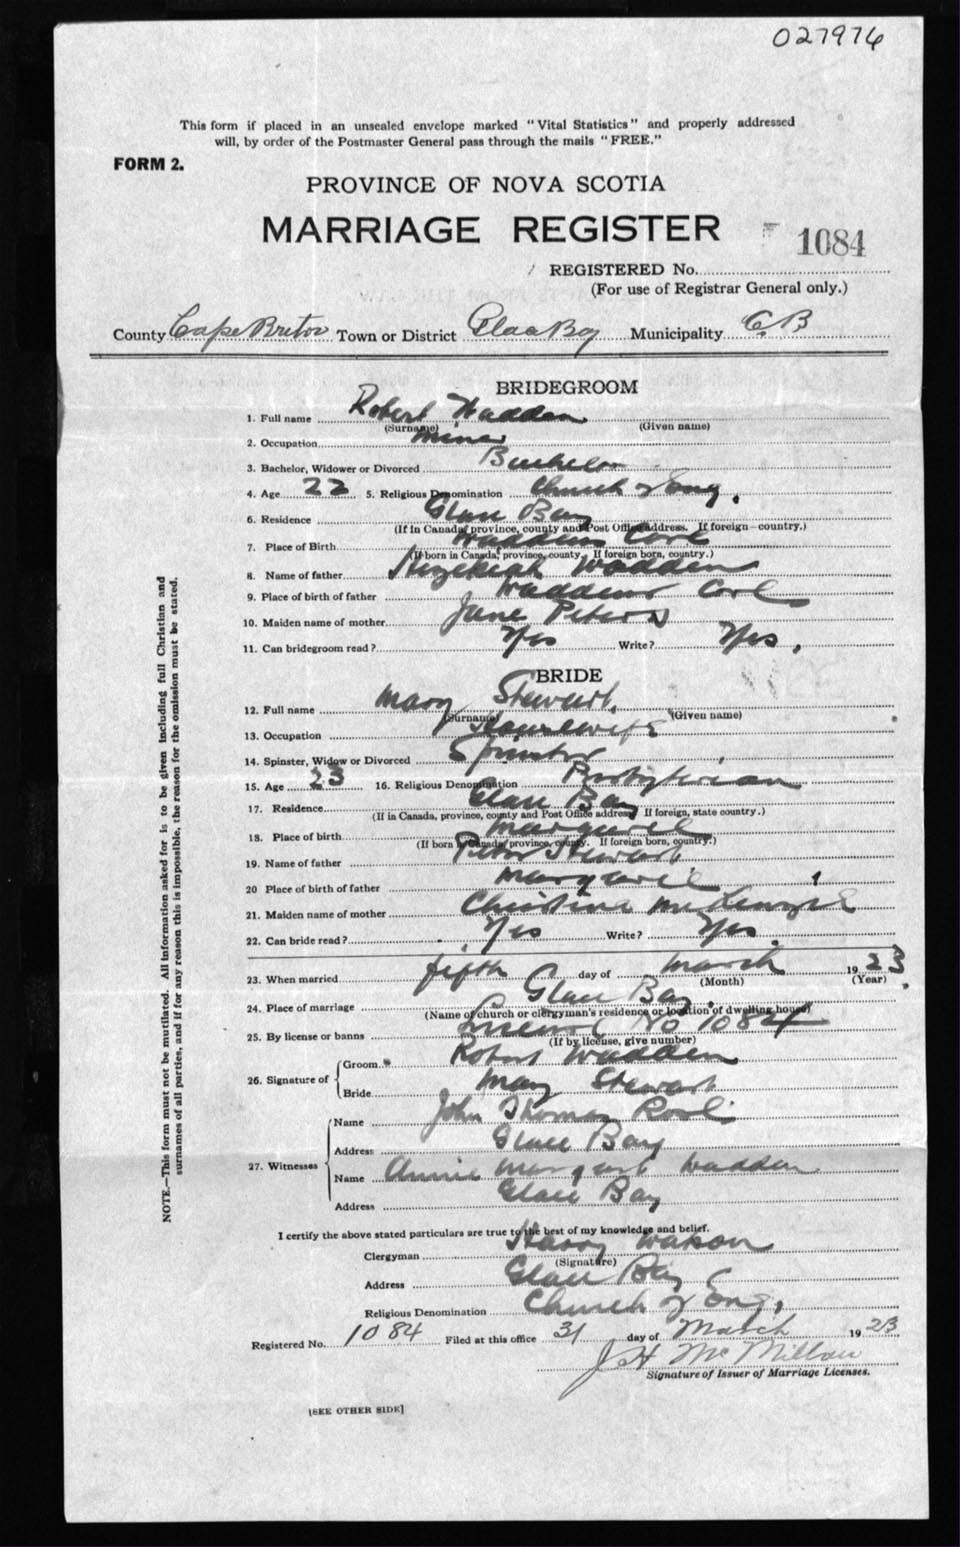 027976
This form if placed in an unsealed envelope marked "Vital Statistics" and properly addressed
will, by order of the Postmaster General pass through the mails "FREE."
FORM 2.
PROVINCE OF NOVA SCOTIA
MARRIAGE REGISTER
1084
REGISTERED No.
(For use of Registrar General only.)
County Cape Breton Town or District Glace Bay Municipality C.B
BRIDEGROOM
1. Full name Robert Wadden
(Surname) (Given name)
2. Occupation Miner
3. Bachelor, Widower or Divorced Bachelor
4. Age 22 5. Religious Denomination Church of Eng.
6. Residence Glace Bay
(If in Canada, province, county and Post Office address. If foreign—country.)
7. Place of Birth Waddens Cove
(If born in Canada, province, county. If foreign born, country.)
8. Name of father Hezekiah Wadden
9. Place of birth of father Waddens Cove
10. Maiden name of mother Jane Peters
11. Can bridegroom read? Yes Write? Yes.
BRIDE
12. Full name Mary Stewart
(Surname) (Given name)
13. Occupation Housewife
14. Spinster, Widow or Divorced Spinster
15. Age 23 16. Religious Denomination Presbyterian
17. Residence Glace Bay
(If in Canada, province, county and Post Office address. If foreign, state country.)
18. Place of birth Margaree
(If born in Canada, province, county. If foreign born, country.)
19. Name of father Peter Stewart
20 Place of birth of father Margaree
21. Maiden name of mother Christina McKenzie
22. Can bride read? Yes Write? Yes.
23. When married fifth day of March 1923
(Month) (Year)
24. Place of marriage Glace Bay
(Name of church or clergyman's residence or location of dwelling house)
25. By license or banns License No 1084
(If by license, give number)
26. Signature of
Groom Robert Wadden
Bride Mary Stewart
27. Witnesses
Name John Thomas
Address Glace Bay
Name Annie Margaret Wadden
Address Glace Bay
I certify the above stated particulars are true to the best of my knowledge and belief.
Clergyman Harry Watson
(Signature)
Address Glace Bay
Religious Denomination Church of Eng.
Registered No. 1084 Filed at this office 31 day of March 1923
J H McMillan
Signature of Issuer of Marriage Licenses.
[SEE OTHER SIDE]
NOTE.—This form must not be mutilated. All information asked for is to be given including full Christian and
surnames of all parties, and if for any reason this is impossible, the reason for the omission must be stated.